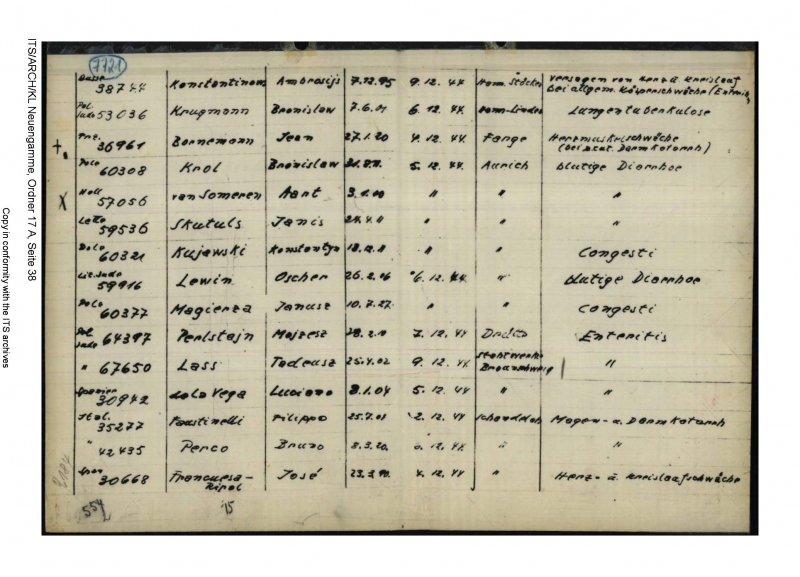 7721
Russe 38744 Konstantinows Ambrosijs 7.12.95 9.12.44 Hann. Stöcken Versagen von Herz u Kreislauf
bei allgem. Körperschwäche
Pol. Jude 53036 Krugmann Bronislaw 7.6.01 6.12.44 Hann-Linden Lungentuberkulose
+. Frz. 36961 Bornemann Jean 27.1.20 4.12.44 Farge Herzmuskelschwäche
(bei acat. Darmkatarrh)
Pole 60308 Krol Bronislaw 5.12.44 Aurich blutige Diarrhoe
X Holl 57056 van Someren Aart " " "
Lette 59536 Skutuls Janis 24.4.11 " " "
Pole 60321 Kujawski Konstantyn " " Congesti
Lit. Jude 59916 Lewin Oscher 26.2.06 6.12.44 " blutige Diarrhoe
Pole 60377 Magierza Janusz 10.7.27 " " Congesti
Pol. Jude 64397 Perlstajn Mojzesz 28.2.10 7.12.44 Drütte Enteritis
" 67650 Lass Tadeusz 25.4.02 9.12.44 Stahlwerke
Braunschweig "
Spanier 30942 de la Vega Luciano 8.1.04 5.12.44 " "
Ital. 35277 Faustinelli Filippo 25.7.01 2.12.44 Schandelah Magen- u. Darmkatarrh
" 42435 Perco Bruno 8.3.20. 12.44 " "
Span 30668 Francuesa-
Ripol José 4.12.44 " Herz- u. Kreislaufschwäche
554 15
ITS/ARCH/KL Neuengamme, Ordner 17 A, Seite 38
Copy in conformity with the ITS archives